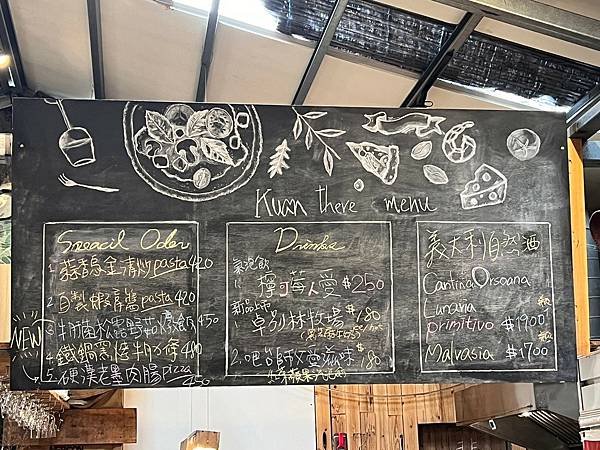 Kuan there menu
Speacil Oder
1. 蒜香烏金清炒pasta 420
2 自製蝦膏醬pasta 420
3. 牛肝菌松露野菇 450
NEW
4. 鐵鍋窯烤牛 480
5. 硬漢老墨肉腸pizza 450
Drinks
氣泡飲
1. 檸可莓人愛 $250
新品上市
1. 卓別林牧場 $180
2. 吧台師父愛 $180
義大利自然酒
Cantina Orsogna
Lunaria
primitivo $1900
Malvasia $1700